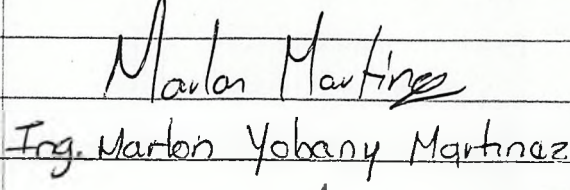 Marlon Martinez
Ing. Marlon Yobany Martinez